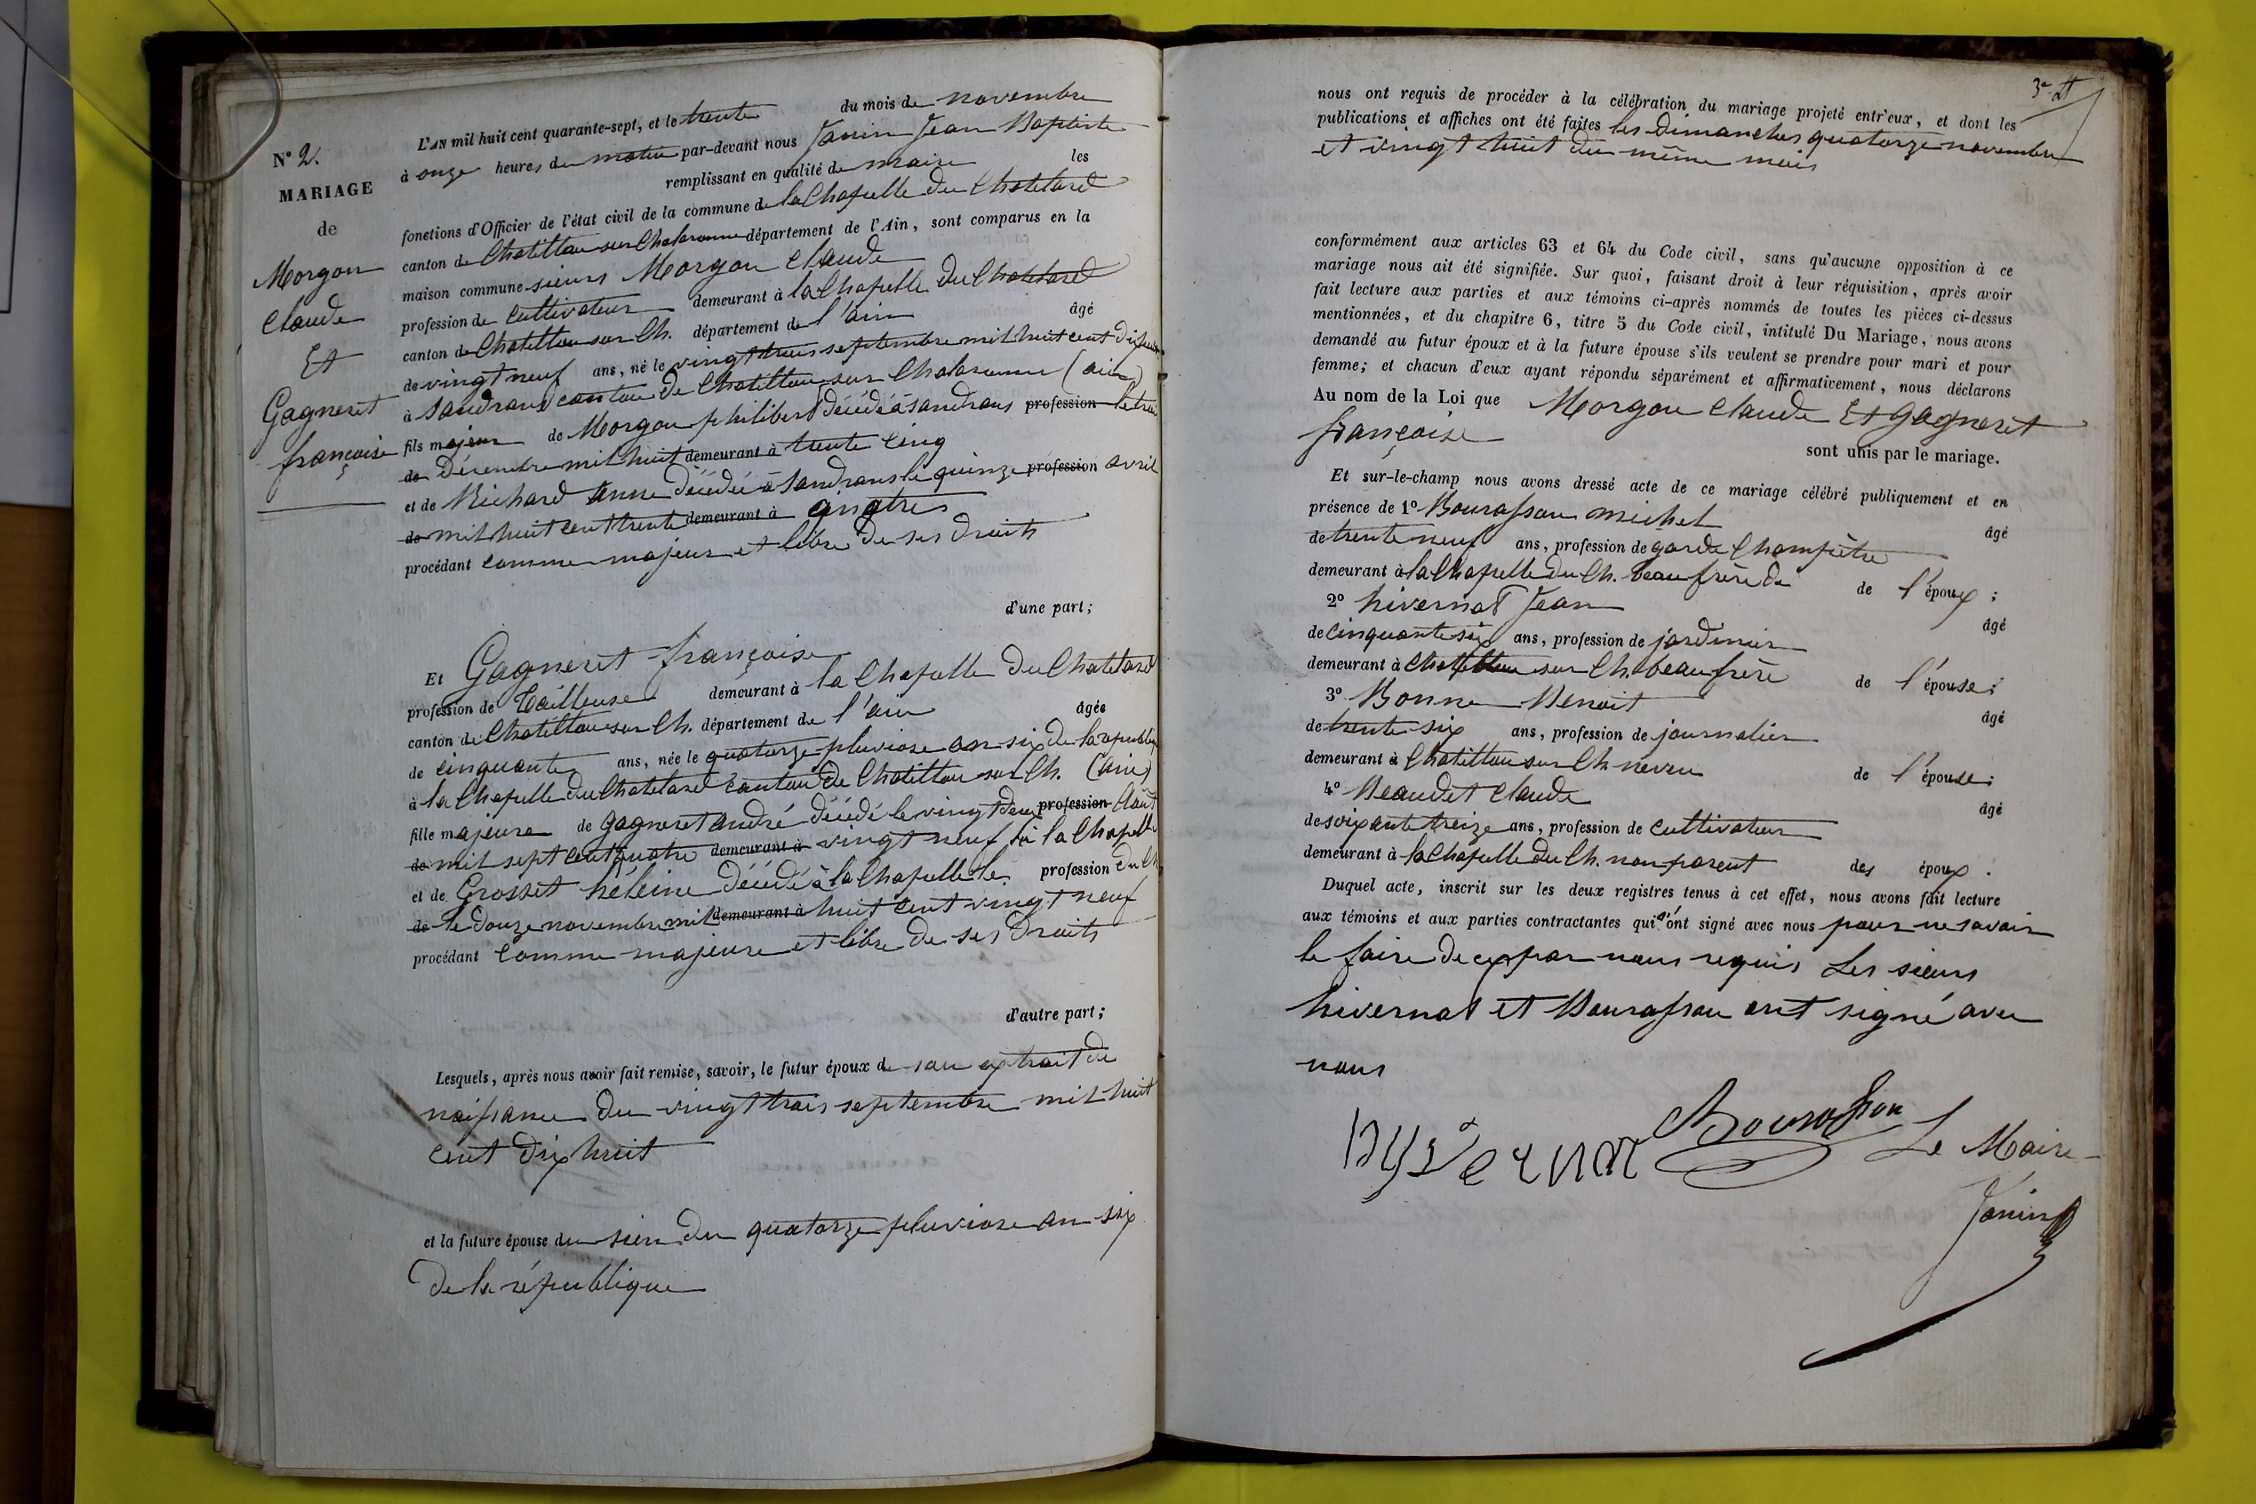 N° 2.
MARIAGE
de
Morgon
Claude
Et
Gagneret
françoise
L'AN mil huit cent quarante-sept, et le trente du mois de novembre
à onze heures du matin par-devant nous Janin Jean Baptiste
remplissant en qualité de maire les
fonctions d'Officier de l'état civil de la commune de la Chapelle du Chatelard
canton de Chatillon sur Chalaronne département de l'Ain, sont comparus en la
maison commune sieurs Morgon Claude
profession de cultivateur demeurant à la Chapelle du Chatelard
canton de Chatillon sur Ch. département de l'ain âgé
de vingt neuf ans, né le vingt trois septembre mil huit cent dix huit
à Sandrans canton de Chatillon sur Chalaronne (ain)
fils majeur de Morgon philibert décédé à Sandrans profession le trois
de Décembre mil huit demeurant à trente cinq
et de Richard anne décédée à Sandrans le quinze profession avril
de mil huit cent trente demeurant à
procédant comme majeur et libre de ses droits
d'une part;
Et Gagneret françoise
profession de tailleuse demeurant à la Chapelle du Chatelard
canton de Chatillon sur Ch. département de l'ain âgée
de cinquante ans, née le quatorze pluviose an six de la république
à la Chapelle du Chatelard canton de Chatillon sur Ch. (ain)
fille majeure de gagneret andré décédé le vingt deux profession Août
de mil sept cent quatre demeurant à vingt neuf à la Chapelle
et de Grosset héleine décédé à la Chapelle le profession du Ch
de le douze novembre mil demeurant à huit cent vingt neuf
procédant comme majeure et libre de ses droits
d'autre part;
Lesquels, après nous avoir fait remise, savoir, le futur époux de son extrait de
naissance du vingt trois septembre mil huit
cent dix huit
et la future épouse du sien du quatorze pluviose an six
de la république
nous ont requis de procéder à la célébration du mariage projeté entr'eux, et dont les
publications et affiches ont été faites les dimanches quatorze novembre
et vingt huit du même mois
conformément aux articles 63 et 64 du Code civil, sans qu'aucune opposition à ce
mariage nous ait été signifiée. Sur quoi, faisant droit à leur réquisition, après avoir
fait lecture aux parties et aux témoins ci-après nommés de toutes les pièces ci-dessus
mentionnées, et du chapitre 6, titre 5 du Code civil, intitulé Du Mariage, nous avons
demandé au futur époux et à la future épouse s'ils veulent se prendre pour mari et pour
femme; et chacun d'eux ayant répondu séparément et affirmativement, nous déclarons
Au nom de la Loi que Morgon Claude Et Gagneret
françoise
sont unis par le mariage.
Et sur-le-champ nous avons dressé acte de ce mariage célébré publiquement et en
présence de 1° Bourasson michel âgé
de trente neuf ans, profession de garde Champêtre
demeurant à la Chapelle du Ch. beau frère de de l'époux;
2° hivernat Jean âgé
de cinquante six ans, profession de jardinier
demeurant à Chatillon sur Ch. beau frère de l'épouse;
3° Bonne Benoit âgé
de trente six ans, profession de journalier
demeurant à Chatillon sur Ch. neveu de l'épouse;
4° Beaudet Claude âgé
de soixante treize ans, profession de cultivateur
demeurant à la Chapelle du Ch. non parent des époux.
Duquel acte, inscrit sur les deux registres tenus à cet effet, nous avons fait lecture
aux témoins et aux parties contractantes qui n'ont signé avec nous pour ne savoir
le faire de ce par nous requis Les sieurs
hivernat et Bourasson ont signé avec
nous
Bourasson
Le Maire
Janin